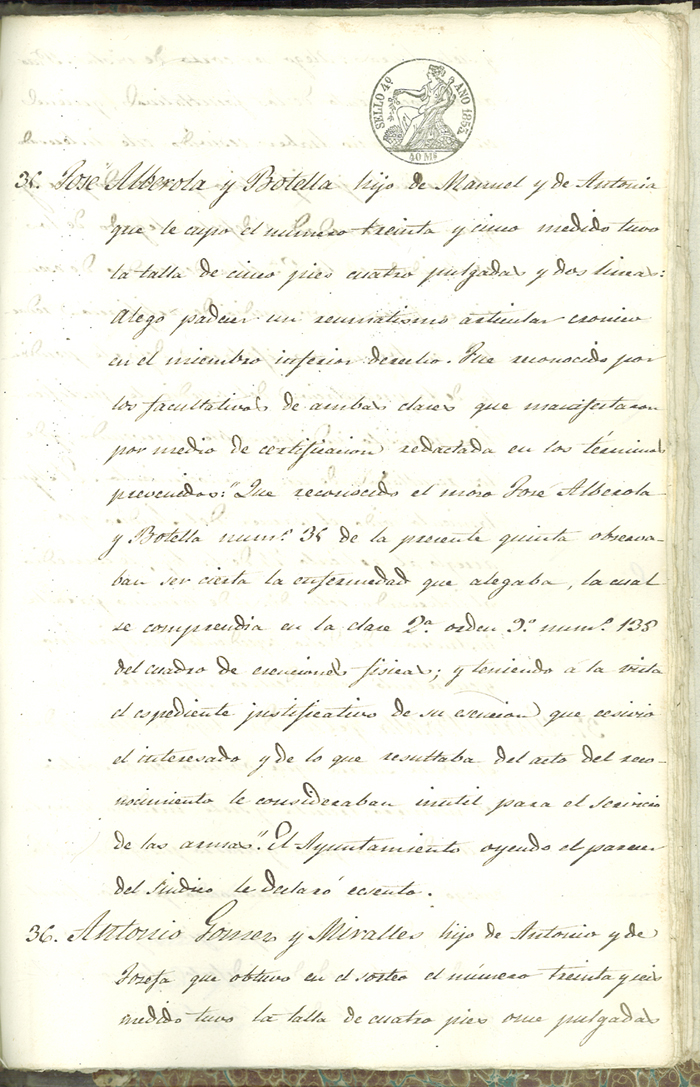 SELLO 4º AÑO 1853.
40 Ms
35. José Alberola y Botella hijo de Manuel y de Antonia
que le cupo el número treinta y cinco medido tuvo
la talla de cinco pies cuatro pulgadas y dos lineas:
Alegó padecer un reumatismo articular cronico
en el miembro inferior derecho. Fue reconocido por
los facultativos de ambas clases que manifestaron
por medio de certificacion redactada en los términos
prevenidos: "Que reconocido el mozo José Alberola
y Botella num.º 35 de la presente quinta observa-
ban ser cierta la enfermedad que alegaba, la cual
se comprendia en la clase 2.ª orden 9.º num.º 135
del cuadro de esenciones fisicas; y teniendo á la vista
el espediente justificativo de su esencion que
el interesado y de lo que resultaba del acto del reco-
nocimiento le consideraban inutil para el servicio
de las armas". El Ayuntamiento oyendo el parecer
del Sindico le declaró esento.
36. Antonio Gomez y Miralles hijo de Antonio y de
Josefa que obtuvo en el sorteo el número treinta y seis
medido tuvo la talla de cuatro pies once pulgadas